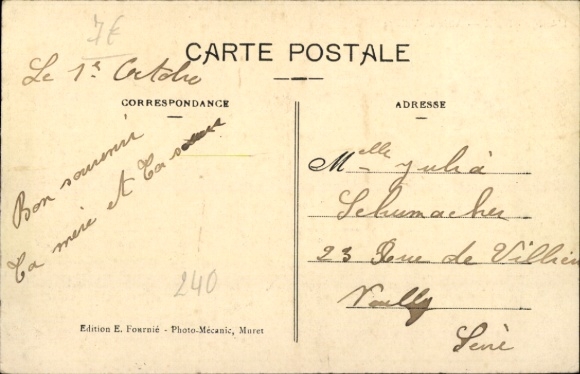 7€
CARTE POSTALE
Le 1er Octobre
CORRESPONDANCE
ADRESSE
Bon souvenir
Ta mère et Ta soeur
Melle Julia
Schumacher
23 Rue de Villiers
Neuilly
Seine
240
Edition E. Fournié - Photo-Mécanic, Muret